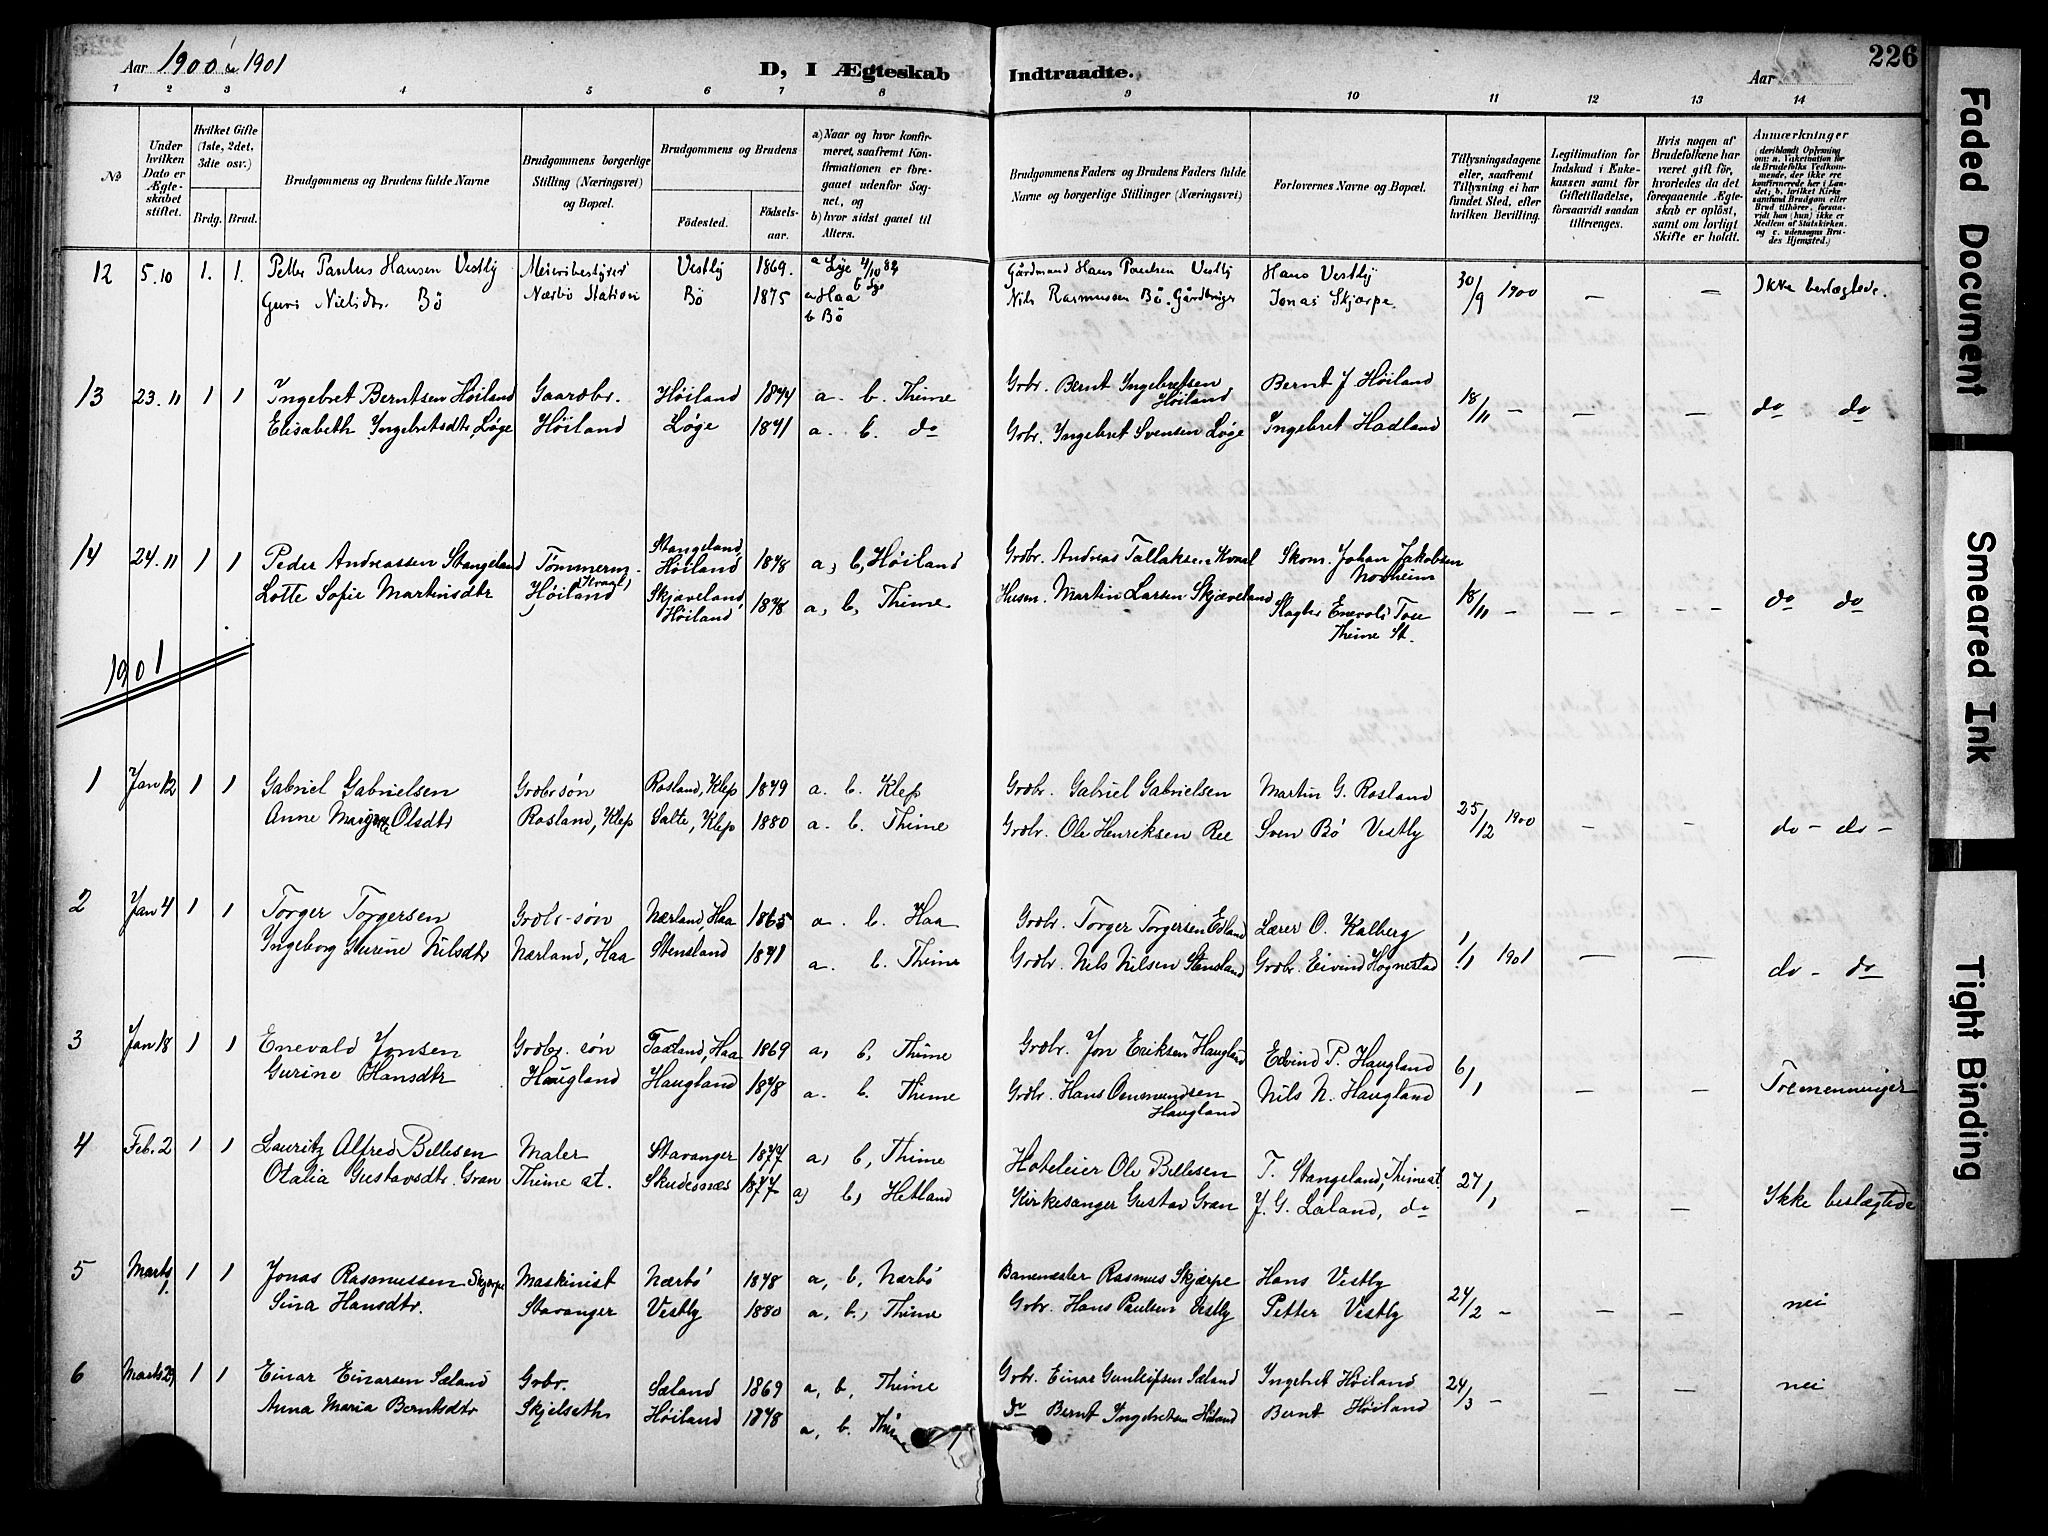 Aar 1900 & 1901
D, I Ægteskab Indtraadte.
Aar
226
1 2 3 4 5 6 7 8 9 10 11 12 13 14
No
Under hvilken Dato er Ægteskabet stiftet.
Hvilket Gifte (1ste, 2det, 3die osv.)
Brdg. Brud.
Brudgommens og Brudens fulde Navne
Brudgommens borgerlige Stilling (Næringsvei) og Bopæl.
Brudgommens og Brudens
Fødested.
Fødselsaar.
a) Naar og hvor konfirmeret, saafremt Konfirmationen er foregaaet udenfor Sognet, og
b) hvor sidst gaaet til Alters.
Brudgommens Faders og Brudens Faders fulde Navne og borgerlige Stillinger (Næringsvei)
Forlovernes Navne og Bopæl.
Tillysningsdagene eller, saafremt Tillysning ei har fundet Sted, efter hvilken Bevilling.
Legitimation for Indskud i Enkekassen samt for Giftetilladelse, forsaavidt saadan tiltrænges.
Hvis nogen af Brudefolkene har været gift før, hvorledes da det foregaaende Ægteskab er opløst, samt om lovligt Skifte er holdt.
Anmærkninger
(deriblandt Oplysning om: a. Vakcination for de Brudefolks Vedkommende, der ikke ere konfirmerede her i Landet; b. hvilket Kirkesamfund Brudgom eller Brud tilhører, forsaavidt han (hun) ikke er Medlem af Statskirken, og c. udensogns Brudes Hjemsted.)
12 5.10 1. 1. Petter Paulus Hansen Vestly Meieribestyrer Vestly 1869. a Lye 4/10 84 b Lye Gårdmand Hans Paulsen Vestly Hans Vestly 30/9 1900 — — Ikke beslægtede.
Guri Nielsdtr. Bö Nærbö Station Bö 1875 a Haa Nils Rasmussen Bö. Gårdbruger Jonas Skjærpe
b Bö
13 23.11 1 1 Ingebret Berntsen Høiland Gaardbr. Høiland 1874 a. b. Thime Grdbr. Bernt Ingebretsen Høiland Bernt J. Høiland 18/11 — — — do do
Elisabeth Ingebretsdtr. Løge Høiland Løge 1871 a. b. do Grbr. Ingebret Svensen Løge Ingebret Hadland
14 24.11 1 1 Peder Andreassen Stangeland Tømmerm. Stangeland, Høiland 1878 a, b, Høiland Grdbr. Andreas Tallaksen Skom. Johan Jakobsen Norheim 18/11 — — — do do
Lotte Sofie Martinsdtr Høiland Skjæveland, Høiland 1878 a, b, Thime Husm. Martin Larsen Skjæveland Slagter Enevold Tou Thime St.
1901
1 Jan 12 1 1 Gabriel Gabrielsen Grdbr søn Rosland, Klep 1879 a. b. Klep Grdbr. Gabriel Gabrielsen Martin G. Rosland 25/12 1900 — — do – do –
Anne Margrete Olsdtr Rosland, Klep Salte, Klep 1880 a. b. Thime Grdbr. Ole Henriksen Ree Sven Bö Vestly
2 Jan 4 1 1 Torger Torgersen Grdbr-søn Nærland, Haa 1865 a. b. Haa Grdbr. Torger Torgersen Edland Lærer O. Kalberg 1/1 1901 — — do – do
Ingeborg Gurine Nilsdtr Nærland, Haa Stensland 1871 a. b. Thime Grdbr. Nils Nilsen Stensland Grdbr. Eivind Hognestad
3 Jan 18 1 1 Enevald Jonsen Grdbr. søn Taxland, Haa 1869 a, b, Thime Grdbr. Jon Eriksen Haugland Edvind P. Haugland 6/1 — — Tremenninger
Gurine Hansdtr Haugland Haugland 1878 a. b. Thime Grdbr. Hans Ommundsen Haugland Nils N. Haugland
4 Feb. 2 1 1 Lauritz Alfred Bellesen Maler Stavanger 1877 a, b, Thime Hoteleier Ole Bellesen T. Stangeland, Thime st. 27/1 — — Ikke beslægtede
Otalia Gustavsdtr. Gran Thime st. Skudesnæs 1877 a) b, Hetland Kirkesanger Gustav Gran J. G. Laland, do
5 Marts 1. 1 1 Jonas Rasmussen Skjærpe Maskinist Nærbö 1878 a, b, Nærbö Banemester Rasmus Skjærpe Hans Vestly 24/2 — — — nei
Sina Hansdtr. Stavanger Vestly 1880 a, b, Thime Grbr. Hans Paulsen Vestly Petter Vestly
6 Marts 29 1 1 Einar Einarsen Sæland Grbr. Sæland 1869 a, b, Thime Grbr. Einar Gunleifsen Sæland Ingebret Høiland 24/3 — — — nei
Anna Maria Berntsdtr Skjelseth Høiland 1878 a, b. Thime do Bernt Ingebretsen Høiland Bernt Høiland
Faded Document
Smeared Ink
Tight Binding